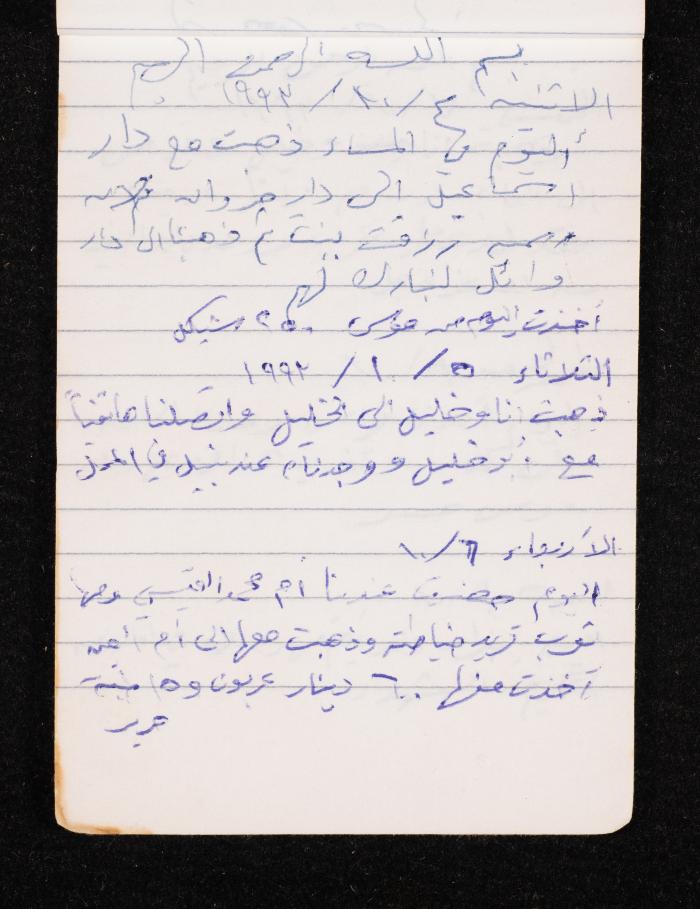 بسم الله الرحمن الرحيم
الاثنين ٤/١٠/١٩٩٣
اليوم في المساء ذهبت مع دار
اسماعيل الى دار مروان
رزقت بنت ثم ذهبنا الى دار
وائل لنبارك لهم
أخذت اليوم من موسى ٢٥٠ شيكل
الثلاثاء ٥/١٠/١٩٩٣
ذهبت أنا وخليل الى الخليل واتصلنا هاتفياً
مع أبو خليل ووجدناه عند نبيل في المحل
الأربعاء ٦/١٠
اليوم حضرت عندنا أم محمد القيسي ومعها
ثوب تريد خياطته وذهبت معها الى أم أيمن
أخذت منها ٦٠٠ دينار عربون و١٥
حرير